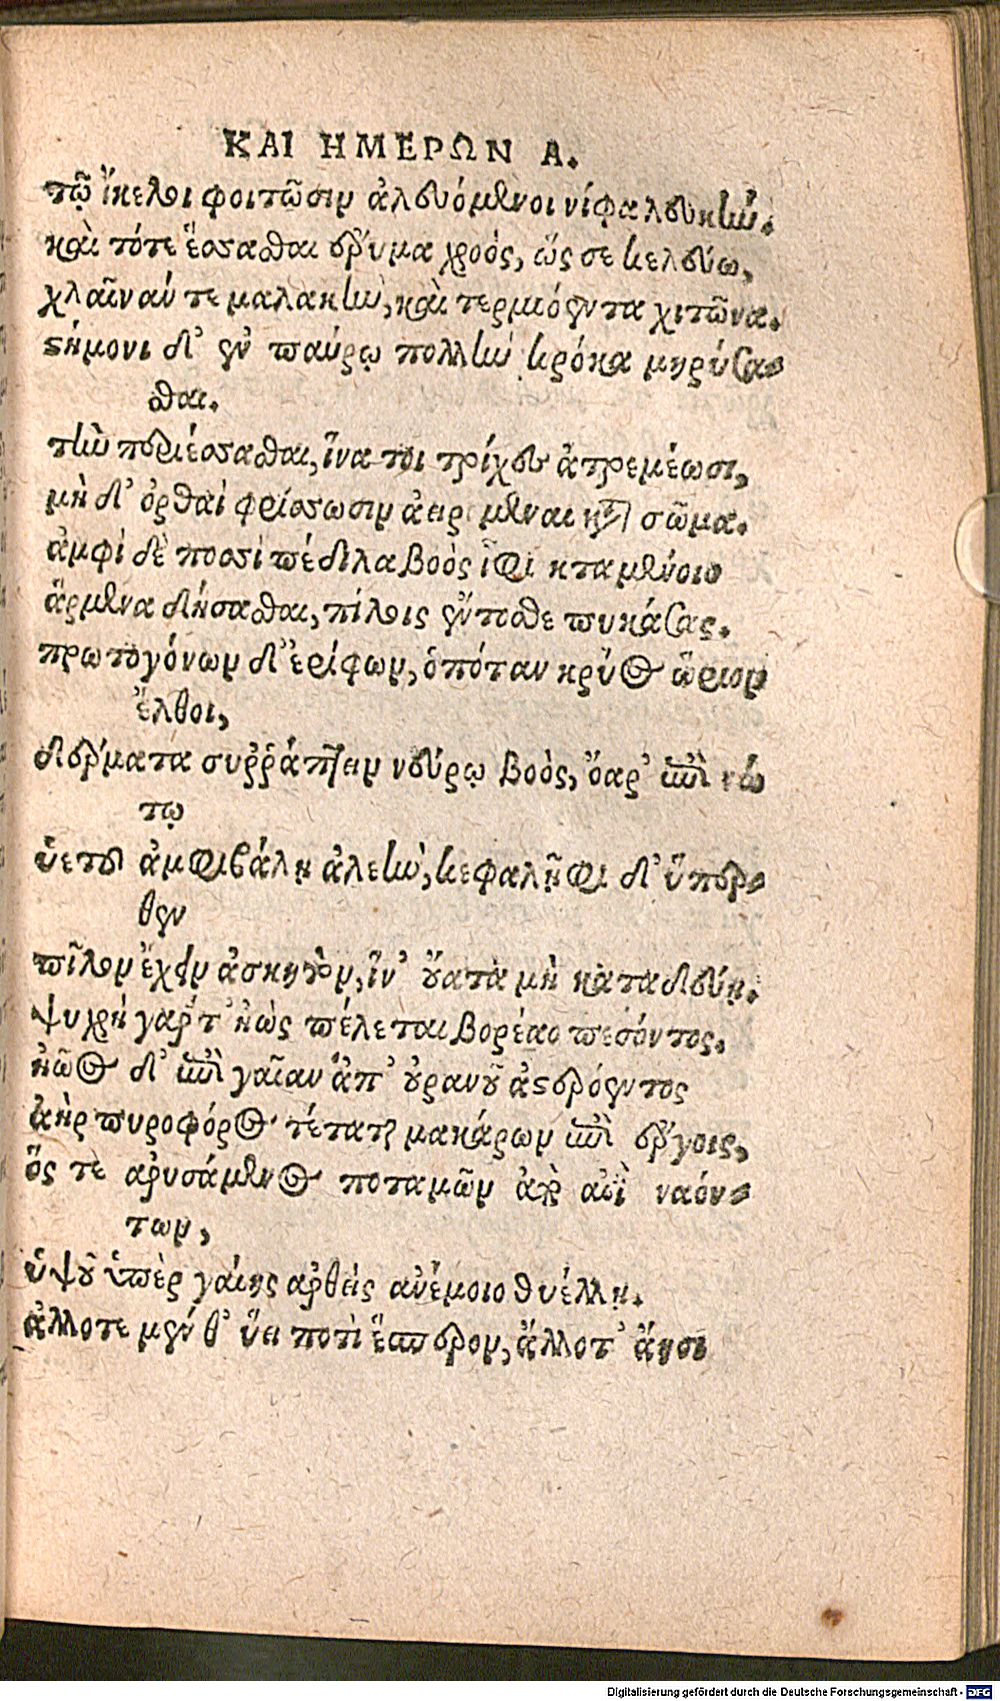 ΚΑΙ ΗΜΕΡΩΝ Α.
τῷ ἴκελοι φοιτῶσιν ἀλευόμενοι νίφα λευκήν.
καὶ τότε ἕσσασθαι ἔρυμα χροὸς, ὥς σε κελεύω,
χλαῖνάν τε μαλακὴν, καὶ τερμιόεντα χιτῶνα.
στήμονι δ' ἐν παύρῳ πολλὴν κρόκα μηρύσα-
σθαι.
τὴν περιέσσασθαι, ἵνα τοι τρίχες ἀτρεμέωσι,
μὴ δ' ὀρθαὶ φρίσσωσιν ἀειρόμεναι κατὰ σῶμα.
ἀμφὶ δὲ ποσσὶ πέδιλα βοὸς ἶφι κταμένοιο
ἄρμενα δήσασθαι, πίλοις ἔντοσθε πυκάσας.
πρωτογόνων δ' ἐρίφων, ὁπόταν κρύος ὥριον
ἔλθοι,
δέρματα συῤῥάπτειν νεύρῳ βοὸς, ὄφρ' ἐπὶ νώ
τῳ
ὑετοῦ ἀμφιβάλῃ ἀλεὴν, κεφαλῇφι δ' ὕπερ-
θεν
πῖλον ἔχειν ἀσκητὸν, ἵν' οὔατα μὴ καταδεύῃ.
ψυχρὴ γάρ τ' ἠὼς πέλεται βορέαο πεσόντος.
ἠῶος δ' ἐπὶ γαῖαν ἀπ' οὐρανοῦ ἀστερόεντος
ἀὴρ πυροφόρος τέταται μακάρων ἐπὶ ἔργοις,
ὅς τε ἀρυσάμενος ποταμῶν ἀπὸ αἰεὶ ναόν-
των,
ὑψοῦ ὑπὲρ γαίης ἀρθεὶς ἀνέμοιο θυέλλῃ.
ἄλλοτε μέν θ' ὕει ποτὶ ἕσπερον, ἄλλοτ' ἄησι
Digitalisierung gefördert durch die Deutsche Forschungsgemeinschaft - DFG